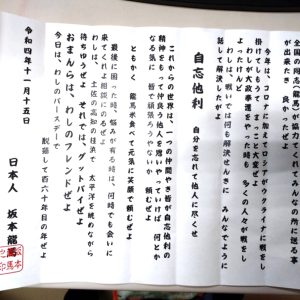 全国の
が出来たき、良かったぜよ
今年は、コロナに加えロシアがウクライナに戦をし
掛けてしもうて、まっこと大変ぜよ
わしが大政奉還をやった時も、多くの人々が戦をし
よったけんど
わしは、戦いでは何も解決せんきに、みんなでように
話して解決したがよ
自忘他利　自分を忘れて他人に尽くせ
これからの世界は、一つの仲間やき皆が自忘他利の
精神をもって仲良う他人を思いやっていけば、何とか
なる気に　皆で頑張ろうやないか　頼むぜよ
ともかく、龍馬米食べて元気に笑顔で頼むぜよ
最後に困った時、悩みが有る時は、何時でも会いに
来てくれよ相談にのるぜよ
わしは、土佐の高知の桂浜で、太平洋を眺めながら
待ちゆうぜよ、それでは、グッドバイぜよ
おまんらは、わしのフレンドぜよ
今日は、わしのバースデーで
脱藩して百六十年目の年ぜよ
令和四年十一月十五日
日本人　坂本龍馬